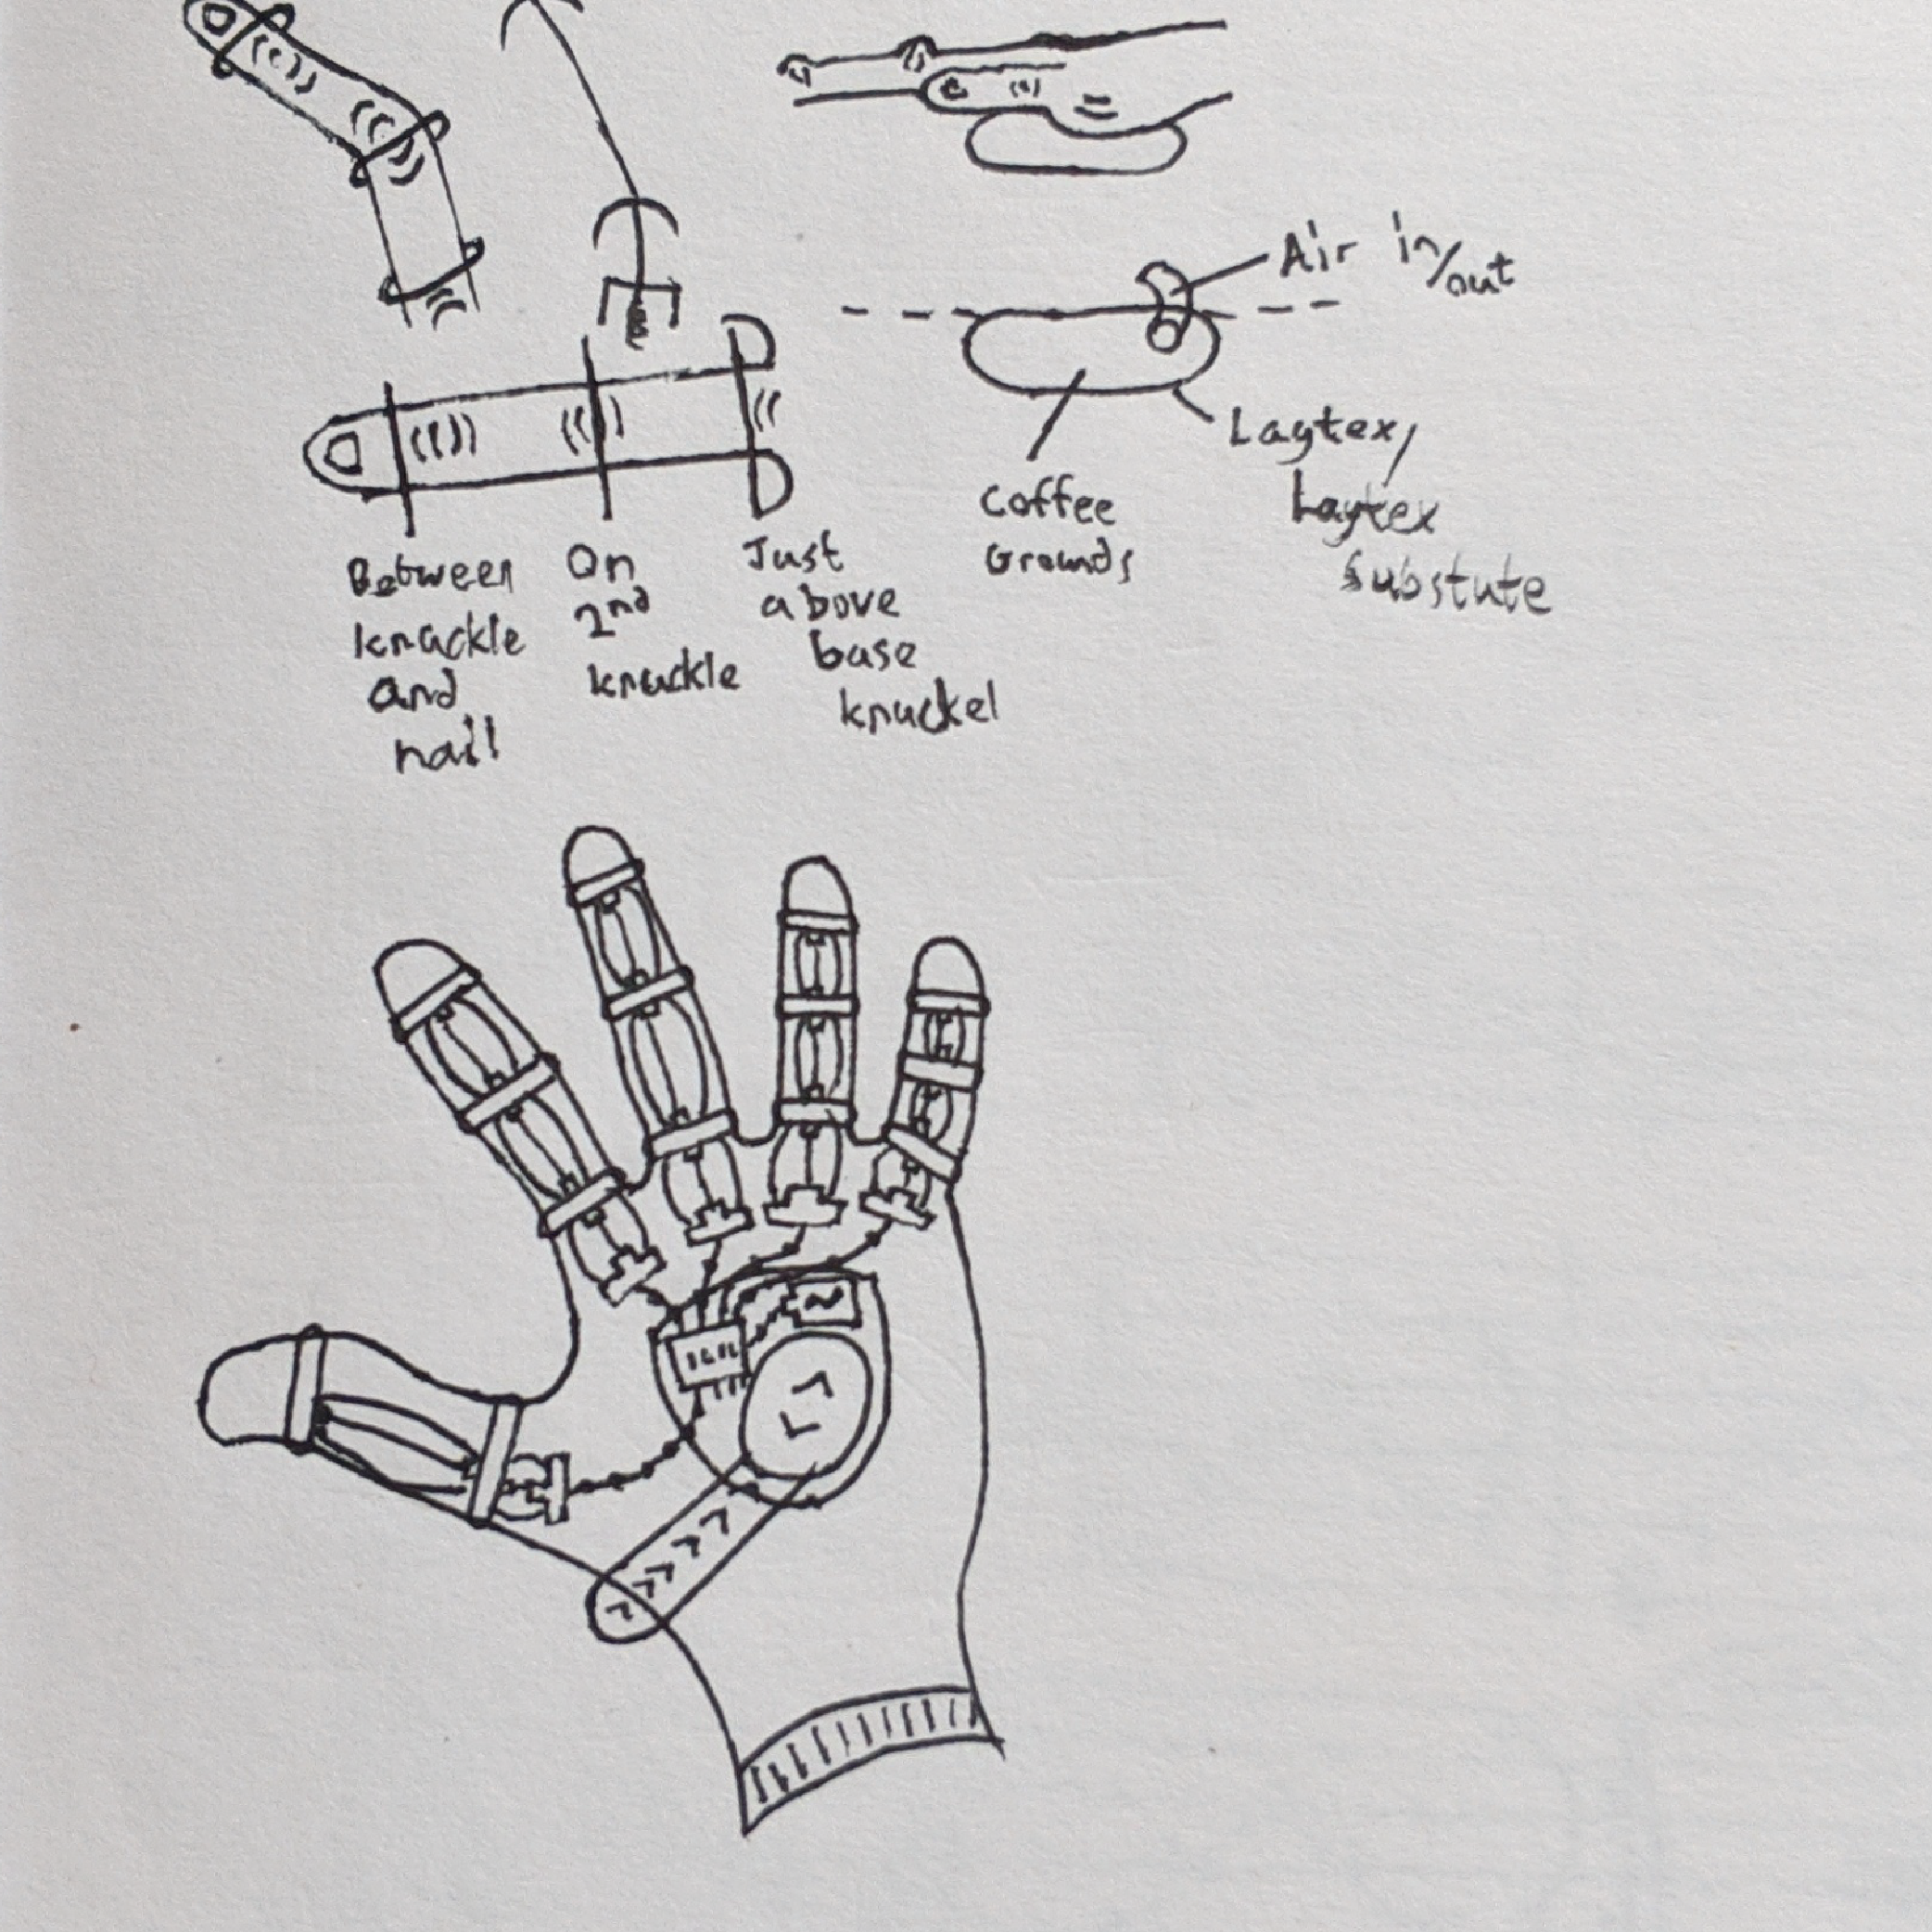 Air in/out
Laytex/
Laytex
Substute
Coffee
Grounds
Between
knuckle
and
nail
On
2nd
knuckle
Just
above
base
knuckel